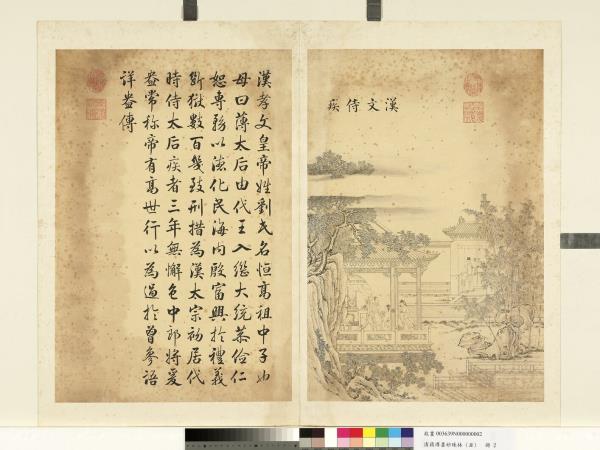 漢文侍疾
漢孝文皇帝姓劉氏名恒高祖中子也
母曰薄太后由代王入繼大統恭儉仁
恕專務以德化民海內殷富興於禮義
斷獄數百幾致刑措為漢太宗初居代
時侍太后疾者三年無懈色中郎將爰
盎常称帝有高世行以為過於曾參語
詳盎傳
故畫 003639N000000002
冊 2